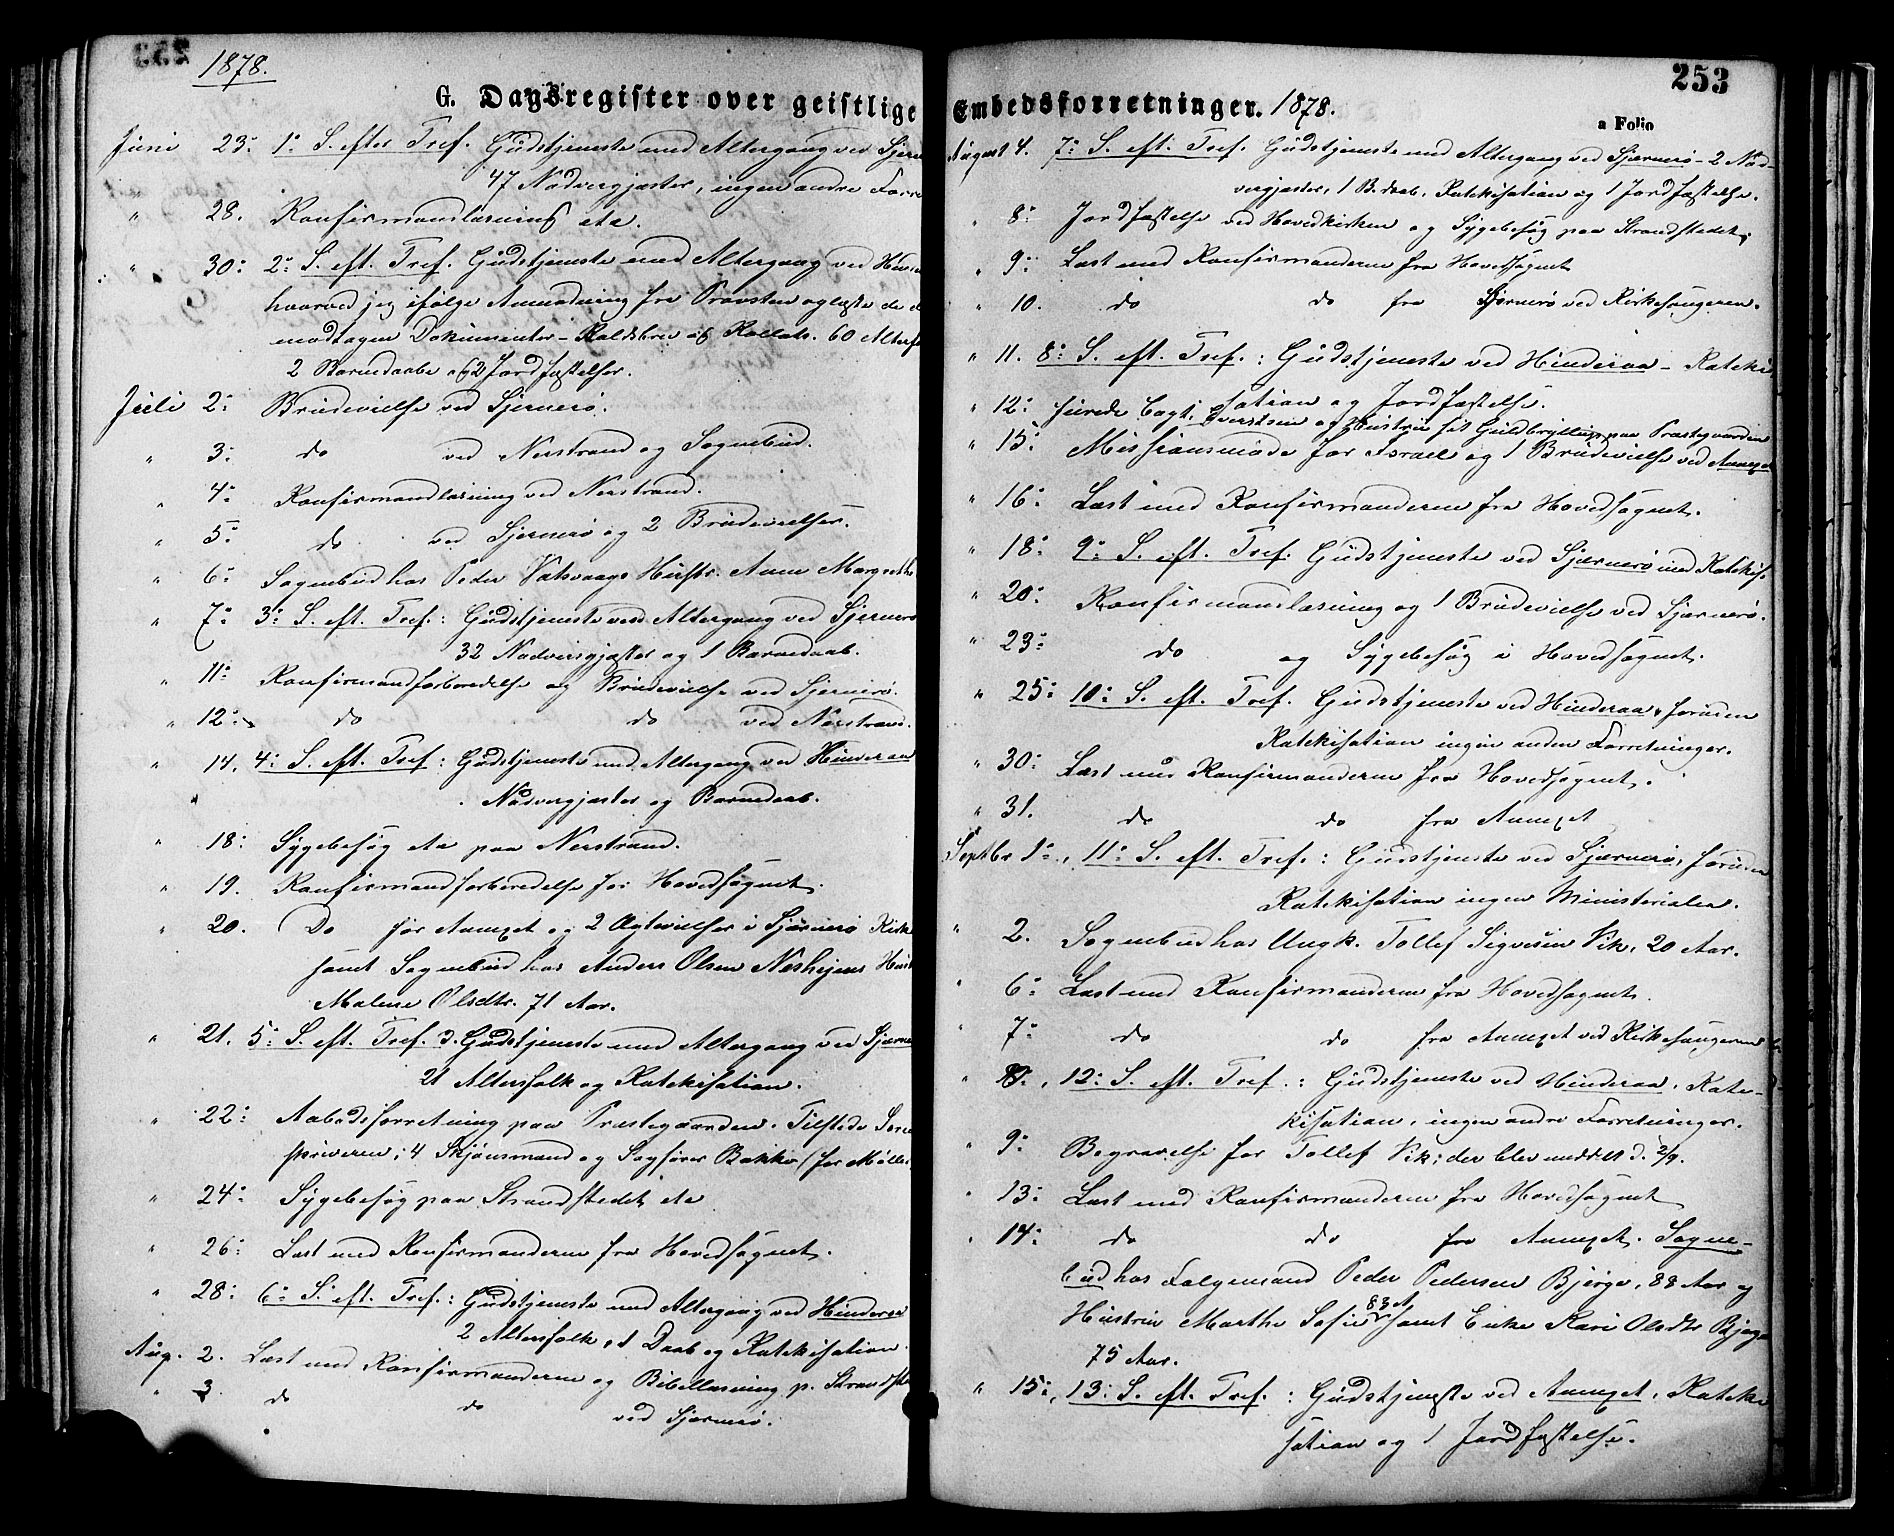 1878.
G. Dagsregister over geistlige
Juni 23: 1: S. efter Tref. Gudstjeneste med Altergang ved Sjern
47 Nadvergjæster, ingen andre Forre
" 28. Konfirmandlæsning etc.
" 30: 2: S. eft. Tref. Gudstjeneste med Altergang ved
hvorved jeg ifølge Anmodning fra Provsten oplæste de
modtagne Dokumenter - Kaldsbrev og Kollats. 60 Alterf
2 Barnedaabe og 2 Jordfæstelser.
Juli 2: Brudevielse ved Sjernerø.
" 3: do ved Nerstrand og Sognebud.
" 4: Konfirmandlæsning ved Nerstrand.
" 5: do ved Sjernerø og 2 Brudevielser.
" 6: Sognebud hos Peder Vatsvaags Hustr. Anne Margrethe
" 7: 3: S. eft. Tref.: Gudstjeneste med Altergang ved Sjernerø
32 Nadvergjæster og 1 Barnedaab.
" 11: Konfirmandforberedelse og Brudevielse ved Sjernerø.
" 12: do do ved Nerstrand.
" 14. 4: S. eft. Tref: Gudstjeneste med Altergang ved Hinderaa
Nadvergjæster og Barnedaab.
" 18: Sygebesøg etc paa Nerstrand.
" 19. Konfirmandforberedelse for Hovedsognet.
" 20. Do for Annexet og 2 Ægtevielser i Sjørnerø Kirk
samt Sognebud hos Anders Olsen Neshejens Hust
Malene Olsdtr. 71 Aar.
" 21. 5: S. eft. Tref. Gudstjeneste med Altergang ved Sjørne
21 Altersfolk og Katekisation.
" 22: Aabodsforretning paa Præstegaarden. Tilstede Soren
skriveren, 4 Skjønsmænd og Sagfører Bakke (for Møller
" 24: Sygebesøg paa Strandstedet etc
" 26: Læst med Konfirmanderne fra Hovedsognet.
" 28: 6: S. eft. Tref.: Gudstjeneste med Altergang ved Hinderaa
2 Altersfolk, 1 Daab og Katekisation.
Aug. 2. Læst med Konfirmanderne og Bibellæsning p. Strandste
" 3 do do ved Sjørnerø.
253
Embedsforretninger. 1878.
a Folio
August 4. 7: S. eft. Tref. Gudstjeneste med Altergang ved Sjørnerø - 2 Nad-
vergjæster, 1 B.daab, Katekisation og 1 Jordfæstelse.
" 8: Jordfæstelse ved Hovedkirken og Sygebesøg paa Strandstedet.
" 9: Læst med Konfirmanderne fra Hovedsognet
" 10. do do fra Sjørnerø ved Kirkesangeren.
" 11. 8: S. eft. Tref.: Gudstjeneste ved Hinderaa - Kateki
sation og Jordfæstelse.
" 12: feirede Capt. og Hustru sit Guldbryllup paa Præstegaarden
" 15: Missionsmøde for Israel og 1 Brudevielse ved Annexe
" 16: Læst med Konfirmanderne fra Hovedsognet.
" 18: 9: S. eft. Tref. Gudstjeneste ved Sjørnerø med Katekis.
" 20: Konfirmandlæsning og 1 Brudevielse ved Sjørnerø.
" 23: do og Sygebesøg i Hovedsognet.
" 25: 10: S. eft. Tref. Gudstjeneste ved Hinderaa, foruden
Katekisation ingen anden Forretninger.
" 30: Læst med Konfirmanderne fra Hovedsognet.
" 31. do do fra Annexet
Septbr 1: 11: S. eft. Tref.: Gudstjeneste ved Sjørnerø, foruden
Katekisation ingen Ministerialer.
" 2. Sognebud hos Ungk. Tollef Sigvesen Vik, 20 Aar.
" 6: Læst med Konfirmanderne fra Hovedsognet.
" 7: do do fra Annexet ved Kirkesangeren
" 8:, 12: S. eft. Tref.: Gudstjeneste ved Hinderaa, Kate-
kisation, ingen andre Forretninger.
" 9: Begravelse for Tollef Vik, der blev meddelt d. 2/9.
" 13: Læst med Konfirmanderne fra Hovedsognet
" 14: do do fra Annexet. Sogne-
bud hos Folgemand Peder Pedersen Bjerge, 88 Aar og
Hustru Marthe Sofie 83 A samt Enke Kari Olsdtr Bjerge
75 Aar.
" 15:, 13: S. eft. Tref.: Gudstjeneste ved Annexet, Kateki
sation og 1 Jordfæstelse.